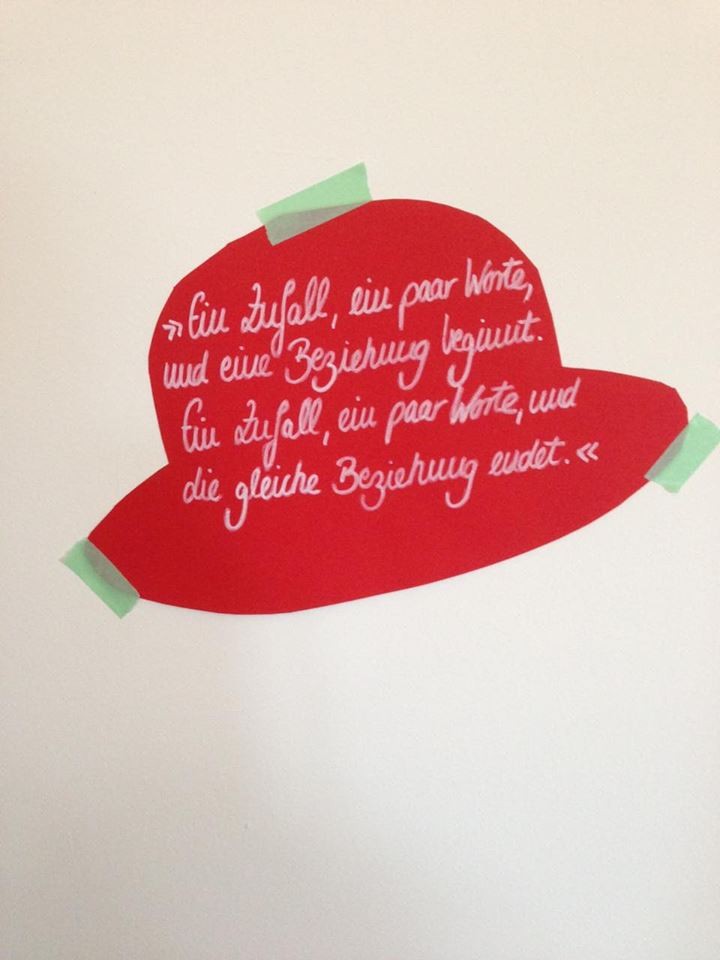 »Ein Zufall, ein paar Worte,
und eine Beziehung beginnt.
Ein Zufall, ein paar Worte, und
die gleiche Beziehung endet.«